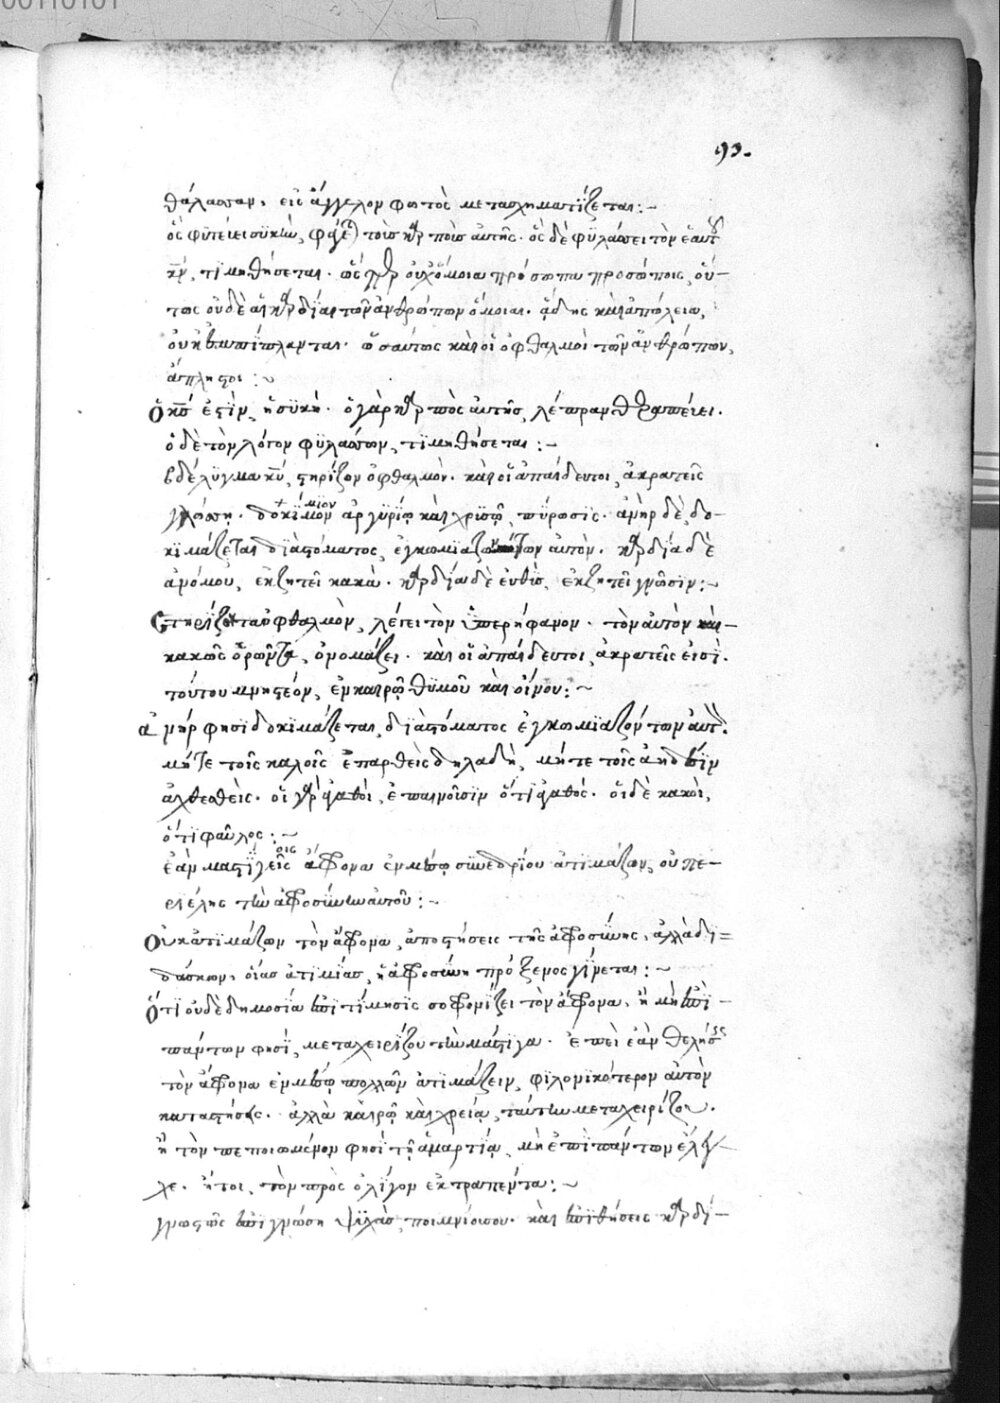 00110101
93.
θάλασσαν, εἰς ἄγγελον φωτὸς μετασχηματίζεται:~
ὃς φυτεύει συκὴν, φάγεται τοὺς καρποὺς αὐτῆς. ὃς δὲ φυλάσσει τὸν ἑαυτοῦ
κν, τιμηθήσεται. ὥσπερ οὐχ ὅμοια πρόσωπα προσώποις, οὕ-
τως οὐδὲ αἱ καρδίαι τῶν ἀνθρώπων ὅμοιαι. ᾅδης καὶ ἀπώλεια,
οὐκ ἐμπίπλανται. ὡσαύτως καὶ οἱ ὀφθαλμοὶ τῶν ἀνθρώπων,
ἄπληστοι:~
Ὁ κς ἐστὶν, ἡ συκὴ. ὁ γὰρ καρπὸς αὐτῆς, λέπραν θεραπεύει.
ὁ δὲ τὸν λόγον φυλάσσων, τιμηθήσεται:~
βδέλυγμα κυ, στηρίζων ὀφθαλμὸν. καὶ οἱ ἀπαίδευτοι, ἀκρατεῖς
γλώσσῃ. δοκίμιον ἀργυρίῳ καὶ χρυσῷ, πύρωσις. ἀνὴρ δὲ, δο-
κιμάζεται διὰ στόματος, ἐγκωμιαζόντων αὐτὸν. καρδία δὲ
ἀνόμου, ἐκζητεῖ κακὰ. καρδία δὲ εὐθὺς, ἐκζητεῖ γνῶσιν:~
Στηρίζοντα ὀφθαλμὸν, λέγει τὸν ὑπερήφανον. τὸν αὐτὸν καὶ-
κακῶς ὁρῶντα, ὀνομάζει. καὶ οἱ ἀπαίδευτοι, ἀκρατεῖς εἰσὶ.
τούτου μνηστέον, ἐν καιρῷ θυμοῦ καὶ οἴνου:~
ἀνήρ φησι δοκιμάζεται, διὰ στόματος ἐγκωμιαζόντων αὐτὸν.
μήτε τοῖς καλοῖς ἐπαρθεὶς δηλαδὴ, μήτε τοῖς ἀηδέσιν
ἀχθεσθείς. οἱ γὰρ ἀγαθοὶ, ἐπαινοῦσιν ὅτι ἀγαθός. οἱ δὲ κακοὶ,
ὅτι φαῦλος:~
ἐὰν μαστιγοῖς ἄφρονα ἐν μέσῳ συνεδρίου ἀτιμάζων, οὐ πε-
ριέλῃς τὴν ἀφροσύνην αὐτοῦ:~
Οὐκ ἀτιμάζων τὸν ἄφρονα, ἀποστήσεις τῆς ἀφροσύνης, ἀλλὰ δι=
δάσκων, οἵας ἀτιμίας, ἡ ἀφροσύνη πρόξενος γίνεται:~
Ὅτι οὐδὲ δημοσία ἐπιτίμησις σωφρονίζει τὸν ἄφρονα, ἢ μὴ ἐπὶ-
πάντων φησὶ, μεταχειρίζου τὴν μάστιγα. ἐπεὶ ἐὰν θελήσῃς
τὸν ἄφρονα ἐν μέσῳ πολλῶν ἀτιμάζειν, φιλονικότερον αὐτὸν
καταστήσεις. ἀλλὰ καιρῷ καὶ χρείᾳ, ταύτην μεταχειρίζου.
ἢ τὸν πεποιωμένον φησὶ τῇ ἁμαρτίᾳ, μὴ ἐπὶ πάντων ἔλεγ-
χε. ἤτοι, τὸν πρὸς ὀλίγον ἐκτραπέντα:~
γνωστῶς ἐπιγνώσῃ ψυχὰς, ποιμνίου σου. καὶ ἐπιθήσεις καρδί-